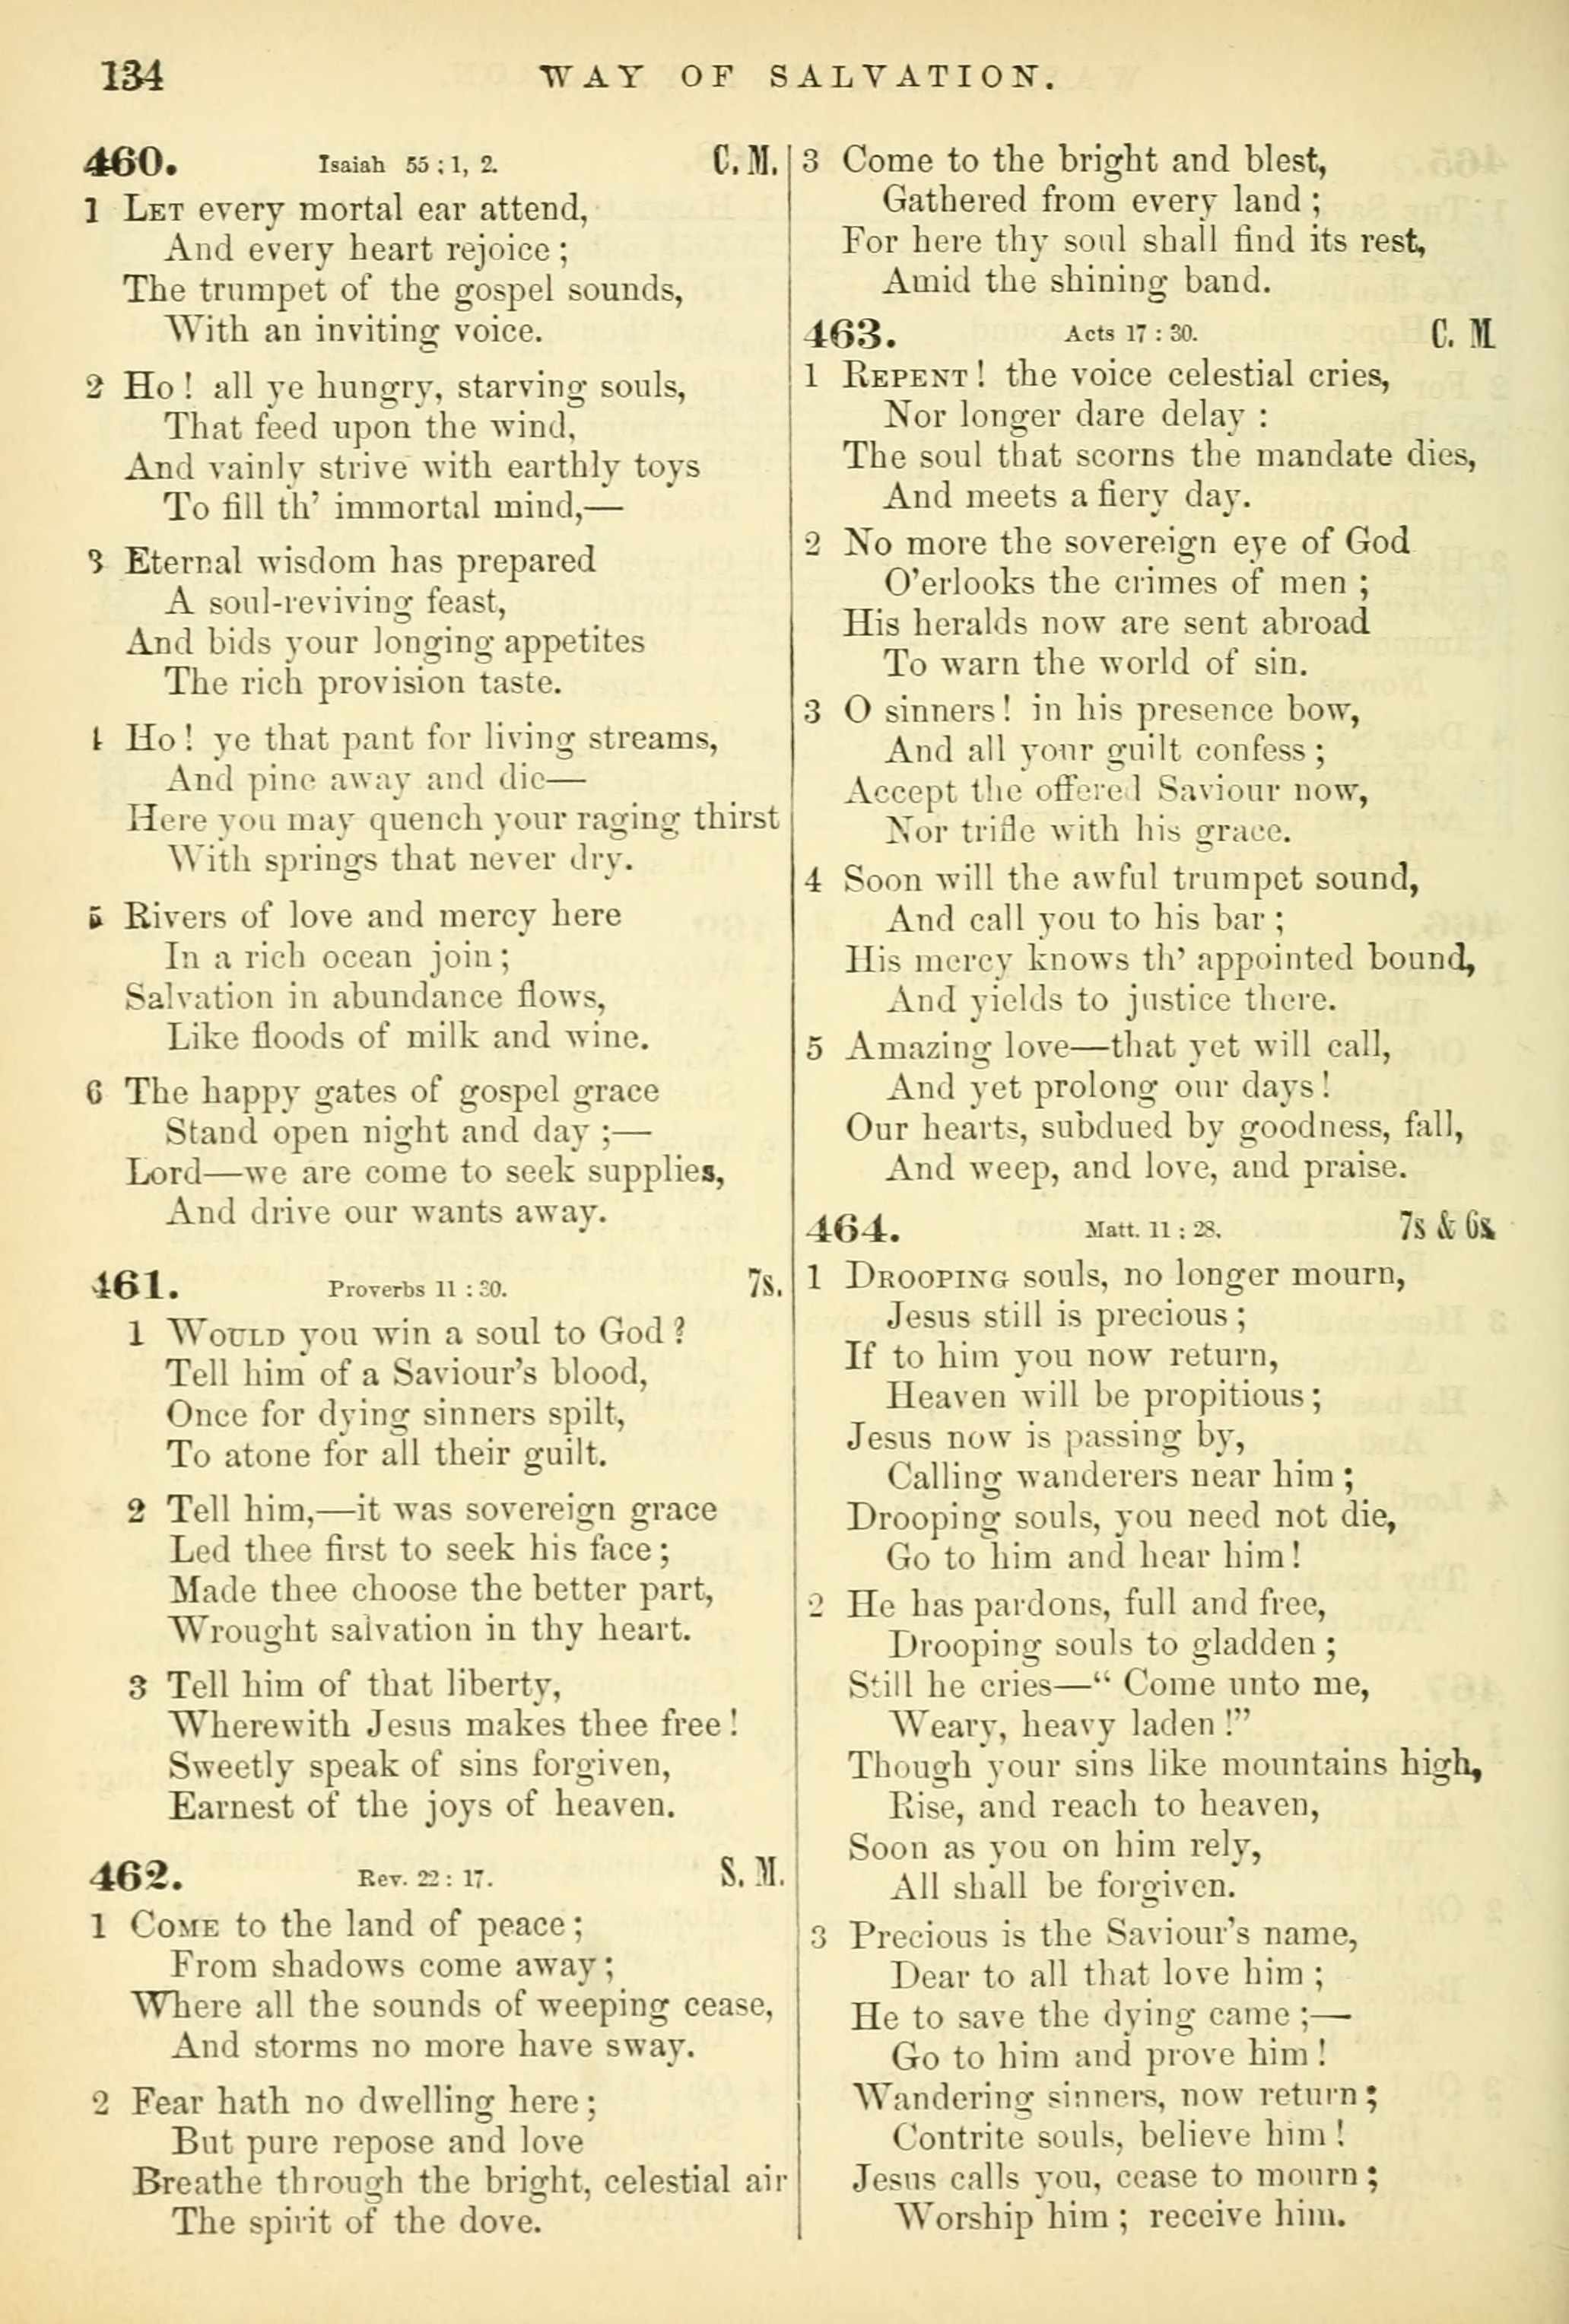 134
WAY OF SALVATION.
460. Isaiah 55 ; 1, 2. C. M.
1 LET every mortal ear attend,
And every heart rejoice ;
The trumpet of the gospel sounds,
With an inviting voice.
2 Ho ! all ye hungry, starving souls,
That feed upon the wind,
And vainly strive with earthly toys
To fill th' immortal mind,—
3 Eternal wisdom has prepared
A soul-reviving feast,
And bids your longing appetites
The rich provision taste.
4 Ho ! ye that pant for living streams,
And pine away and die—
Here you may quench your raging thirst
With springs that never dry.
5 Rivers of love and mercy here
In a rich ocean join ;
Salvation in abundance flows,
Like floods of milk and wine.
6 The happy gates of gospel grace
Stand open night and day ;—
Lord—we are come to seek supplies,
And drive our wants away.
461. Proverbs 11 : 30. 7s.
1 WOULD you win a soul to God ?
Tell him of a Saviour's blood,
Once for dying sinners spilt,
To atone for all their guilt.
2 Tell him,—it was sovereign grace
Led thee first to seek his face ;
Made thee choose the better part,
Wrought salvation in thy heart.
3 Tell him of that liberty,
Wherewith Jesus makes thee free !
Sweetly speak of sins forgiven,
Earnest of the joys of heaven.
462. Rev. 22 : 17. S. M.
1 COME to the land of peace ;
From shadows come away ;
Where all the sounds of weeping cease,
And storms no more have sway.
2 Fear hath no dwelling here ;
But pure repose and love
Breathe through the bright, celestial air
The spirit of the dove.
3 Come to the bright and blest,
Gathered from every land ;
For here thy soul shall find its rest,
Amid the shining band.
463. Acts 17 : 30. C. M
1 REPENT ! the voice celestial cries,
Nor longer dare delay :
The soul that scorns the mandate dies,
And meets a fiery day.
2 No more the sovereign eye of God
O'erlooks the crimes of men ;
His heralds now are sent abroad
To warn the world of sin.
3 O sinners ! in his presence bow,
And all your guilt confess ;
Accept the offered Saviour now,
Nor trifle with his grace.
4 Soon will the awful trumpet sound,
And call you to his bar ;
His mercy knows th' appointed bound,
And yields to justice there.
5 Amazing love—that yet will call,
And yet prolong our days !
Our hearts, subdued by goodness, fall,
And weep, and love, and praise.
464. Matt. 11 : 28. 7s & 6s.
1 DROOPING souls, no longer mourn,
Jesus still is precious ;
If to him you now return,
Heaven will be propitious ;
Jesus now is passing by,
Calling wanderers near him ;
Drooping souls, you need not die,
Go to him and hear him !
2 He has pardons, full and free,
Drooping souls to gladden ;
Still he cries—" Come unto me,
Weary, heavy laden !"
Though your sins like mountains high,
Rise, and reach to heaven,
Soon as you on him rely,
All shall be forgiven.
3 Precious is the Saviour's name,
Dear to all that love him ;
He to save the dying came ;—
Go to him and prove him !
Wandering sinners, now return ;
Contrite souls, believe him !
Jesus calls you, cease to mourn ;
Worship him ; receive him.